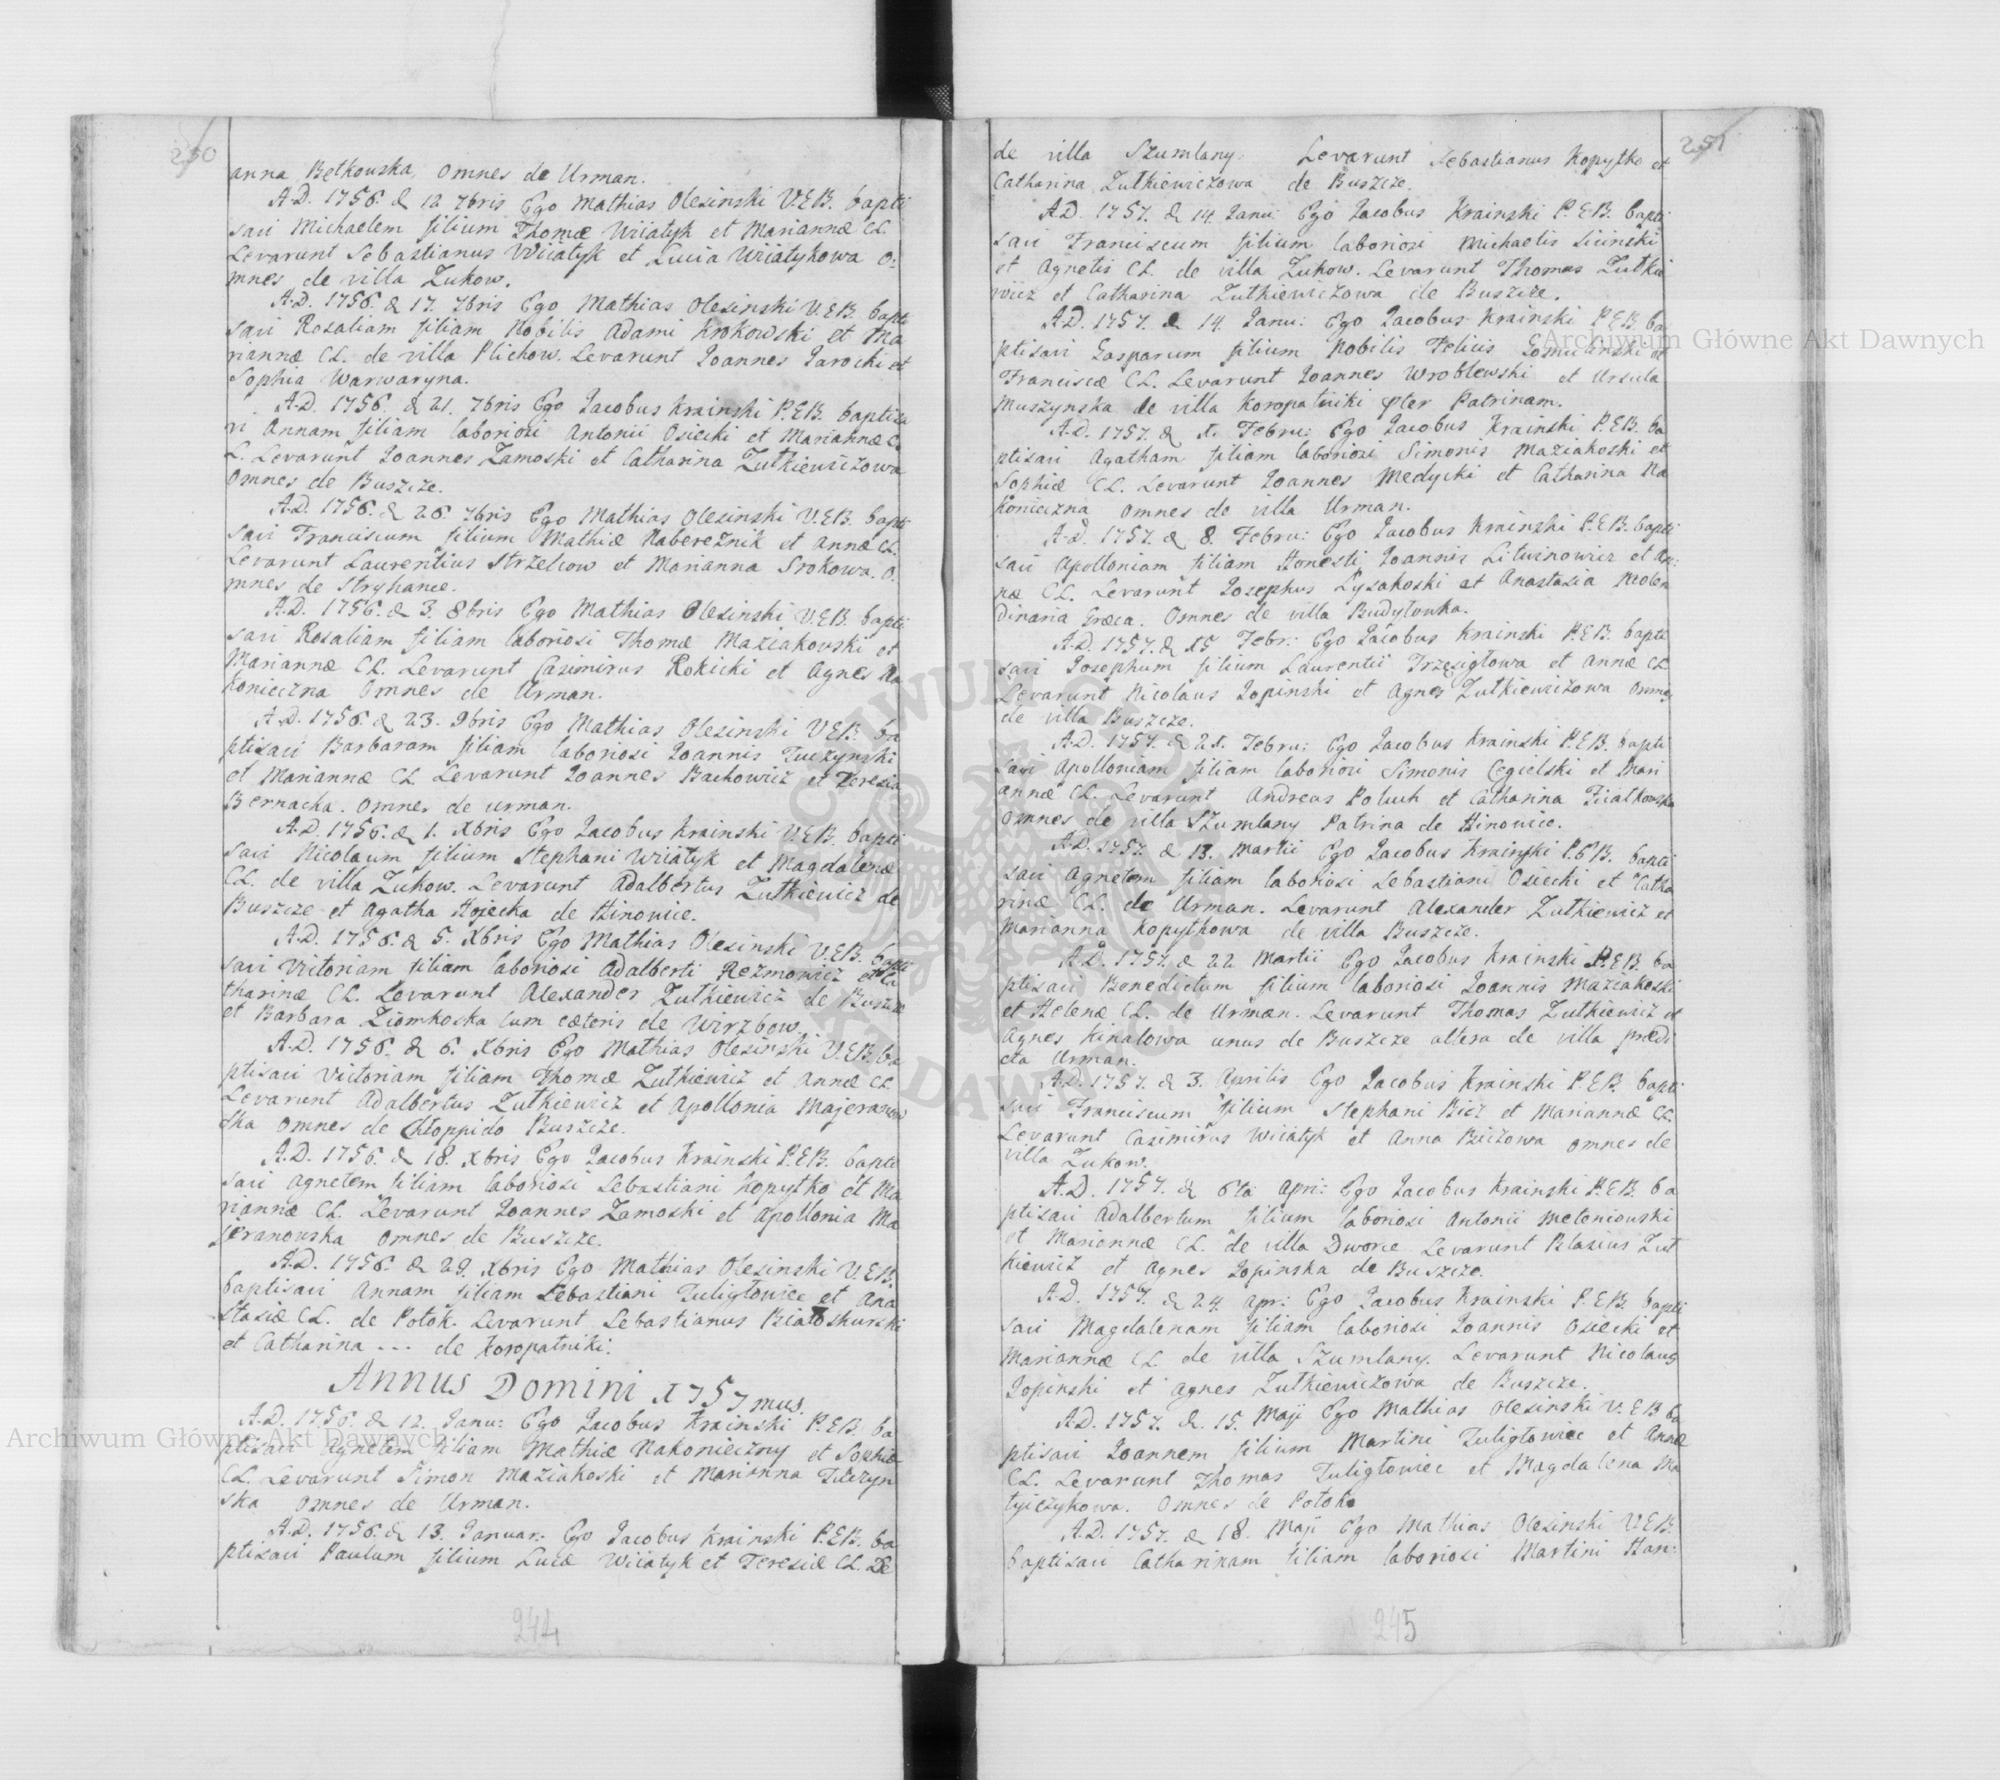 250
anna Bętkowska, omnes de Urman.
A.D. 1756. d 12 7bris Ego Mathias Olesinski V.E.B. bapti
savi Michaelem filium Thomæ Wiiatyk et Mariannæ CL.
Levarunt Sebastianus Wiiatyk et Lucia Wiiatykowa o=
mnes de villa Zukow.
A.D. 1756. d 17. 7bris Ego Mathias Olesinski V.E.B. bapti
savi Rosaliam filiam Nobilis Adami Krokowski et Ma
riannæ CL. de villa Plichow. Levarunt Joannes Jarocki et
Sophia Warwaryna.
A.D. 1756. d 21. 7bris Ego Jacobus Krainski P.E.B. baptisa
vi Annam filiam laboriosi Antonii Osiecki et Mariannæ C.
L. Levarunt Joannes Zamoski et Catharina Zutkiewiczowa
Omnes de Buszcze.
A.D. 1756. d 26. 7bris Ego Mathias Olesinski V.E.B. bapti
savi Franciscum filium Mathiæ Naberežnik et Annæ CL.
Levarunt Laurentius Strzelcow et Marianna Srokowa. O.
mnes de Stryhance.
A.D. 1756. d 3. 8bris Ego Mathias Olesinski V.E.B. bapti
savi Rosaliam filiam laboriosi Thomæ Maziakowski et
Mariannæ CL. Levarunt Casimirus Rokicki et Agnes Na
konieczna Omnes de Urman.
A.D. 1756. d 23. 9bris Ego Mathias Olesinski V.E.B. ba
ptisavi Barbaram filiam laboriosi Joannis Tuczynski
et Mariannæ CL Levarunt Joannes Bachowicz et Teresia
Bernacka. Omnes de urman.
A.D. 1756. d 1. Xbris Ego Jacobus Krainski V.E.B. bapti
savi Nicolaum filium Stephani Wiiatyk et Magdalenæ
CL. de villa Zukow. Levarunt Adalbertus Zutkiewicz de
Buszcze et Agatha Hojecka de Hinowice.
A.D. 1756. d 5. Xbris Ego Mathias Olesinski V.E.B. bapti
savi Victoriam filiam laboriosi Adalberti Rezmowicz et Ca
tharinæ CL. Levarunt Alexander Zutkiewicz de Buszcze
et Barbara Ziomkoska cum cæteris de Wirzbow.
A.D. 1756. d 6. Xbris Ego Mathias Olesinski V.E.B. ba
ptisavi Victoriam filiam Thomæ Zutkiewicz et Annæ CL.
Levarunt Adalbertus Zutkiewicz et Apollonia Majeranow
ska omnes de Oppido Buszcze.
A.D. 1756. d 18. Xbris Ego Jacobus Krainski P.E.B. bapti
savi Agnetem filiam laboriosi Sebastiani Kopytko et Ma
riannæ CL. Levarunt Joannes Zamoski et Apollonia Ma
jeranowska omnes de Buszcze.
A.D. 1756. d 29. Xbris Ego Mathias Olesinski V.E.B.
baptisavi Annam filiam Sebastiani Tuligłowiec et Ana
stasiæ CL. de Potok. Levarunt Sebastianus Białoskurski
et Catharina ... de Koropatniki.
Annus Domini 1757mus.
A.D. 1756. d 12. Janu: Ego Jacobus Krainski P.E.B. ba
ptisavi Agnetem filiam Mathiæ Nakonieczny et Sophiæ
CL. Levarunt Simon Maziakoski et Marianna Tuczyn
ska omnes de Urman.
A.D. 1756. d 13. Januar: Ego Jacobus Krainski P.E.B. ba
ptisavi Paulum filium Lucæ Wiiatyk et Teresiæ CL. De
244
251
de villa Szumlany. Levarunt Sebastianus Kopytko et
Catharina Zutkiewiczowa de Buszcze.
A.D. 1757. d 14 Janu: Ego Jacobus Krainski P.E.B. bapti
savi Franciscum filium laboriosi Michaelis Sicinski
et Agnetis CL. de villa Zukow. Levarunt Thomas Zutkie
wicz et Catharina Zutkiewiczowa de Buszcze.
A.D. 1757. d 14. Janu: Ego Jacobus Krainski P.E.B. ba
ptisavi Gasparum filium Nobilis Felicis Gomulinski et
Franciscæ CL. Levarunt Joannes Wroblewski et Ursula
Muszynska de villa Koropatniki pter Patrinam.
A.D. 1757. d 1. Febru: Ego Jacobus Krainski P.E.B. ba
ptisavi Agatham filiam laboriosi Simonis Maziakoski et
Sophiæ CL. Levarunt Joannes Medycki et Catharina Na
konieczna omnes de villa Urman.
A.D. 1757. d 8. Febru: Ego Jacobus Krainski P.E.B. bapti
savi Apolloniam filiam Honesti Joannis Litwinowicz et An:
næ CL. Levarunt Josephus Lysakoski et Anastasia Molen
dinaria Græca. Omnes de villa Budytowka.
A.D. 1757. d 15 Febr: Ego Jacobus Krainski P.E.B. bapti
savi Josephum filium Laurentii Trzęsigłowa et Annæ CL
Levarunt Nicolaus Łopinski et Agnes Zutkiewiczowa Omnes
de villa Buszcze.
A.D. 1757. d 21. Febru: Ego Jacobus Krainski P.E.B. bapti
savi Apolloniam filiam laboriosi Simonis Cegielski et Mari
annæ CL. Levarunt Andreas Poluch et Catharina Fiałkowska
omnes de villa Szumlany Patrina de Hinowice.
A.D. 1757. d 13. Martii Ego Jacobus Krainski P.E.B. bapti
savi Agnetem filiam laboriosi Sebastiani Osiecki et Catha
rinæ CL. de Urman. Levarunt Alexander Zutkiewicz et
Marianna Kopytkowa de villa Buszcze.
A.D. 1757. d 22 Martii Ego Jacobus Krainski P.E.B. ba
ptisavi Benedictum filium laboriosi Joannis Maziakoski
et Helenæ CL. de Urman. Levarunt Thomas Zutkiewicz et
Agnes Kinalowa unus de Buszcze altera de villa prædi
cta Urman.
A.D. 1757. d 3. Aprilis Ego Jacobus Krainski P.E.B. bapti
savi Franciscum filium Stephani Bicz et Mariannæ CL.
Levarunt Casimirus Wiiatyk et Anna Biczowa omnes de
villa Zukow.
A.D. 1757. d 6ta Apri: Ego Jacobus Krainski P.E.B. ba
ptisavi Adalbertum filium laboriosi Antonii Meteniowski
et Mariannæ CL. de villa Dworce Levarunt Blasius Zut
kiewicz et Agnes Łopinska de Buszcze.
A.D. 1757. d 24. Apr: Ego Jacobus Krainski P.E.B. bapti
savi Magdalenam filiam laboriosi Joannis Osiecki et
Mariannæ CL de villa Szumlany. Levarunt Nicolaus
Łopinski et Agnes Zutkiewiczowa de Buszcze.
A.D. 1757. d. 15. Maji Ego Mathias Olesinski V.E.B ba
ptisavi Joannem filium Martini Tuligłowiec et Annæ
CL. Levarunt Thomas Tuligłowiec et Magdalena Ma
tyiczykowa. Omnes de Potok.
A.D. 1757. d 18. Maji Ego Mathias Olesinski V.E.B.
baptisavi Catharinam filiam laboriosi Martini Han:
245
Archiwum Główne Akt Dawnych
Archiwum Główne Akt Dawnych